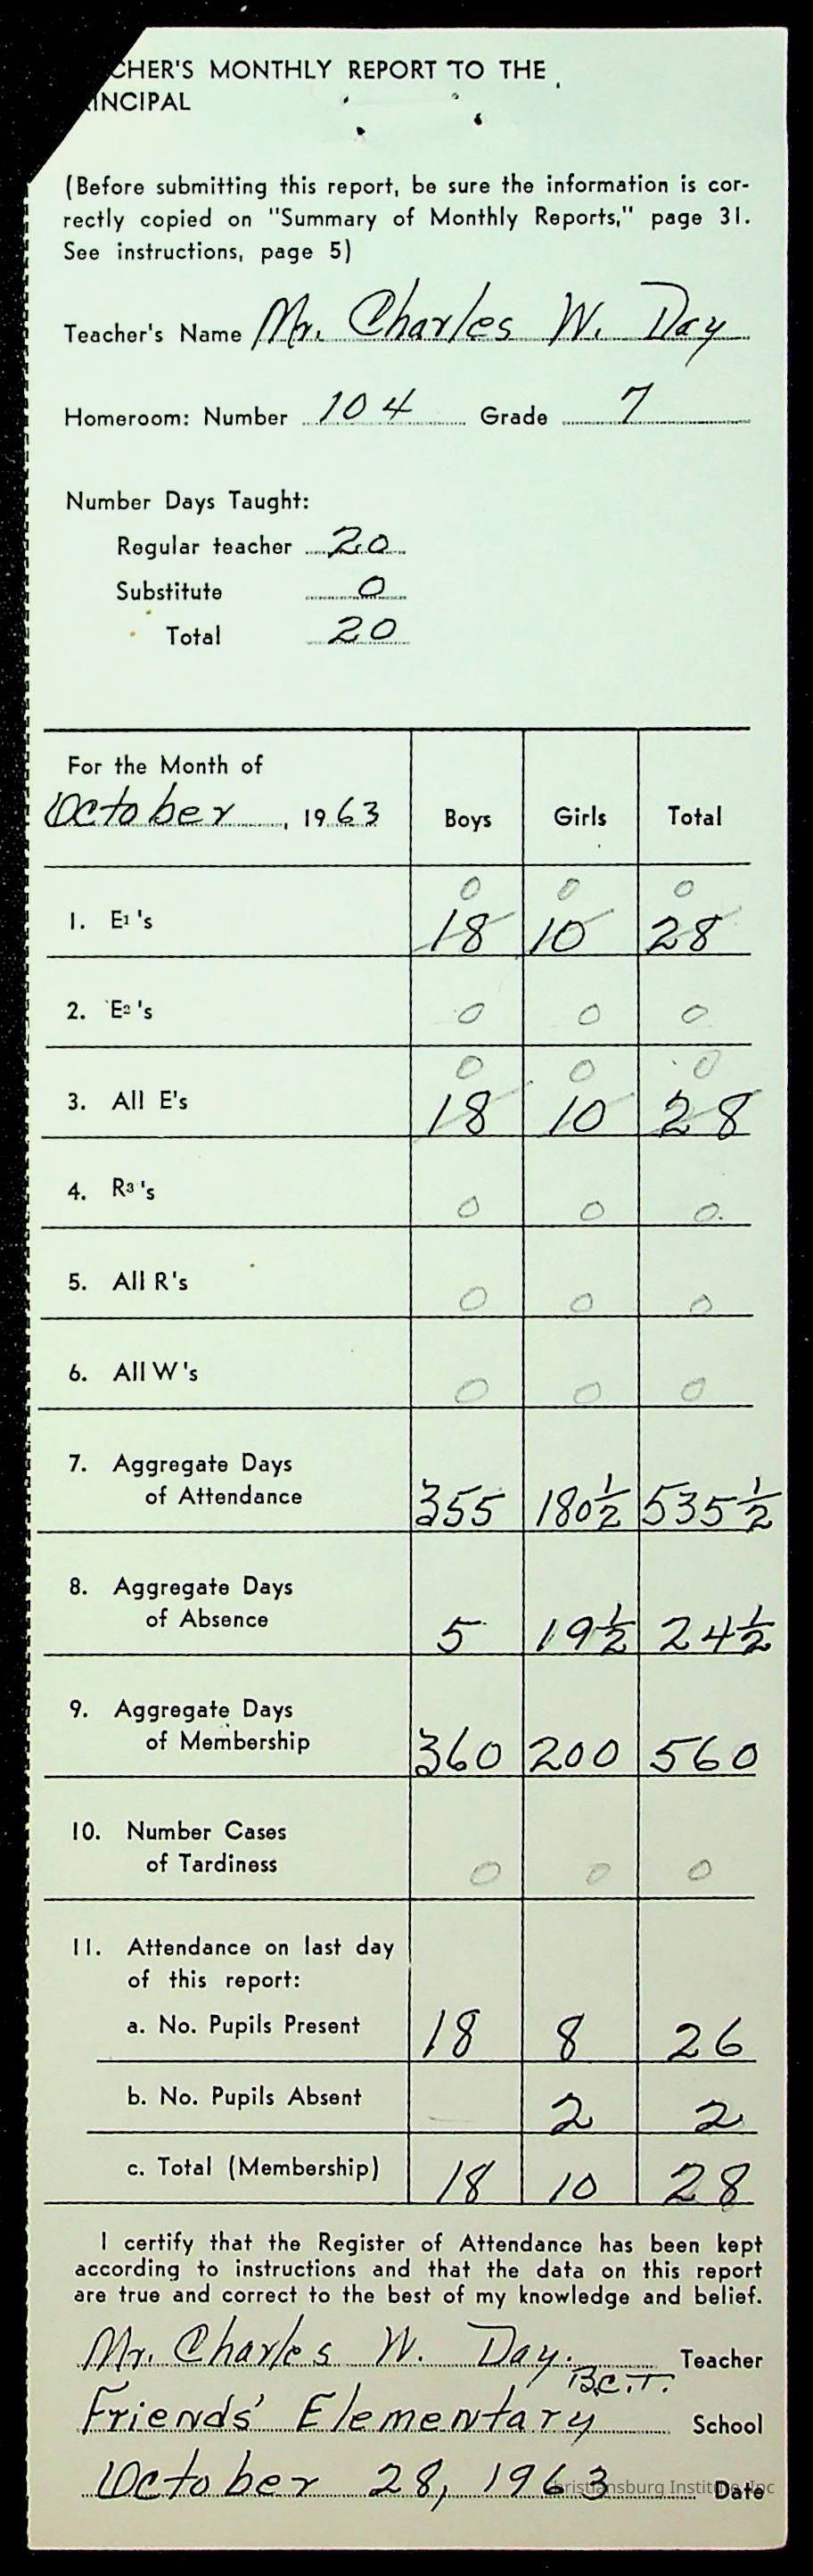 CHER'S MONTHLY REPORT TO THE
INCIPAL
(Before submitting this report, be sure the information is cor-
rectly copied on "Summary of Monthly Reports," page 31.
See instructions, page 5)
Teacher's Name Mr. Charles W. Day
Homeroom: Number 104 Grade 7
Number Days Taught:
Regular teacher 20
Substitute 0
Total 20
For the Month of
October, 1963 Boys Girls Total
0 0 0
1. E1's 18 10 28
2. E2's 0 0 0
0 0 0
3. All E's 18 10 28
4. R3's 0 0 0
5. All R's 0 0 0
6. All W's 0 0 0
7. Aggregate Days
of Attendance 355 180½ 535½
8. Aggregate Days
of Absence 5 19½ 24½
9. Aggregate Days
of Membership 360 200 560
10. Number Cases
of Tardiness 0 0 0
11. Attendance on last day
of this report:
a. No. Pupils Present 18 8 26
b. No. Pupils Absent 2 2
c. Total (Membership) 18 10 28
I certify that the Register of Attendance has been kept
according to instructions and that the data on this report
are true and correct to the best of my knowledge and belief.
Mr. Charles W. Day. Teacher
B.C.T.
Friends' Elementary School
October 28, 1963 Date
Christiansburg Institute, Inc